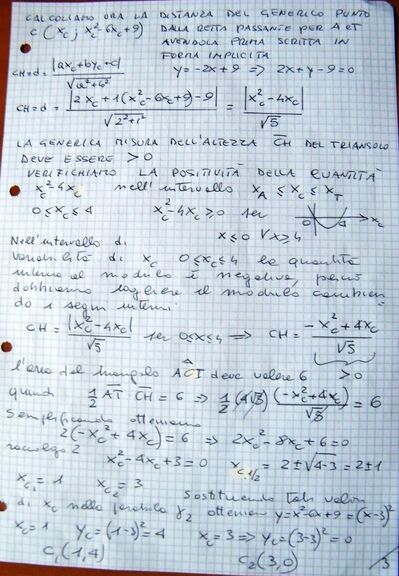 CALCOLIAMO ORA LA DISTANZA DEL GENERICO PUNTO
C (x_C; x_C²-6x_C+9) DALLA RETTA PASSANTE PER A E T
AVENDOLA PRIMA SCRITTA IN
FORMA IMPLICITA
CH=d= |ax_C+by_C+c| / √(a²+b²) y=-2x+9 => 2x+y-9=0
CH=d= |2x_C+1(x_C²-6x_C+9)-9| / √(2²+1²) = |x_C²-4x_C| / √5
LA GENERICA MISURA DELL'ALTEZZA CH DEL TRIANGOLO
DEVE ESSERE >0
VERIFICHIAMO LA POSITIVITÀ DELLA QUANTITÀ
x_C²-4x_C nell'intervallo x_A ≤ x_C ≤ x_T
0 ≤ x_C ≤ 4 x_C²-4x_C ≥ 0 per x_C
x ≤ 0 ∨ x ≥ 4
Nell'intervallo di
variabilità di x_C 0 ≤ x_C ≤ 4 la quantità
interna al modulo è negativa, perciò
dobbiamo togliere il modulo cambian
do i segni interni
CH = |x_C²-4x_C| / √5 per 0≤x≤4 => CH = (-x_C²+4x_C) / √5
l'area del triangolo ACT deve valere 6 >0
quindi 1/2 AT CH = 6 => 1/2 (4√5) (-x_C²+4x_C)/√5 = 6
Semplificando otteniamo
2(-x_C²+4x_C) = 6 => 2x_C²-8x_C+6=0
raccolgo 2 x_C²-4x_C+3=0 x_C1/2 = 2±√(4-3) = 2±1
x_C1 = 1 x_C2 = 3 Sostituendo tali valori
di x_C nella parabola γ2 otteniamo y=x²-6x+9=(x-3)²
x_C=1 y_C=(1-3)²=4 x_C=3 => y_C=(3-3)²=0
C1(1,4) C2(3,0) 3